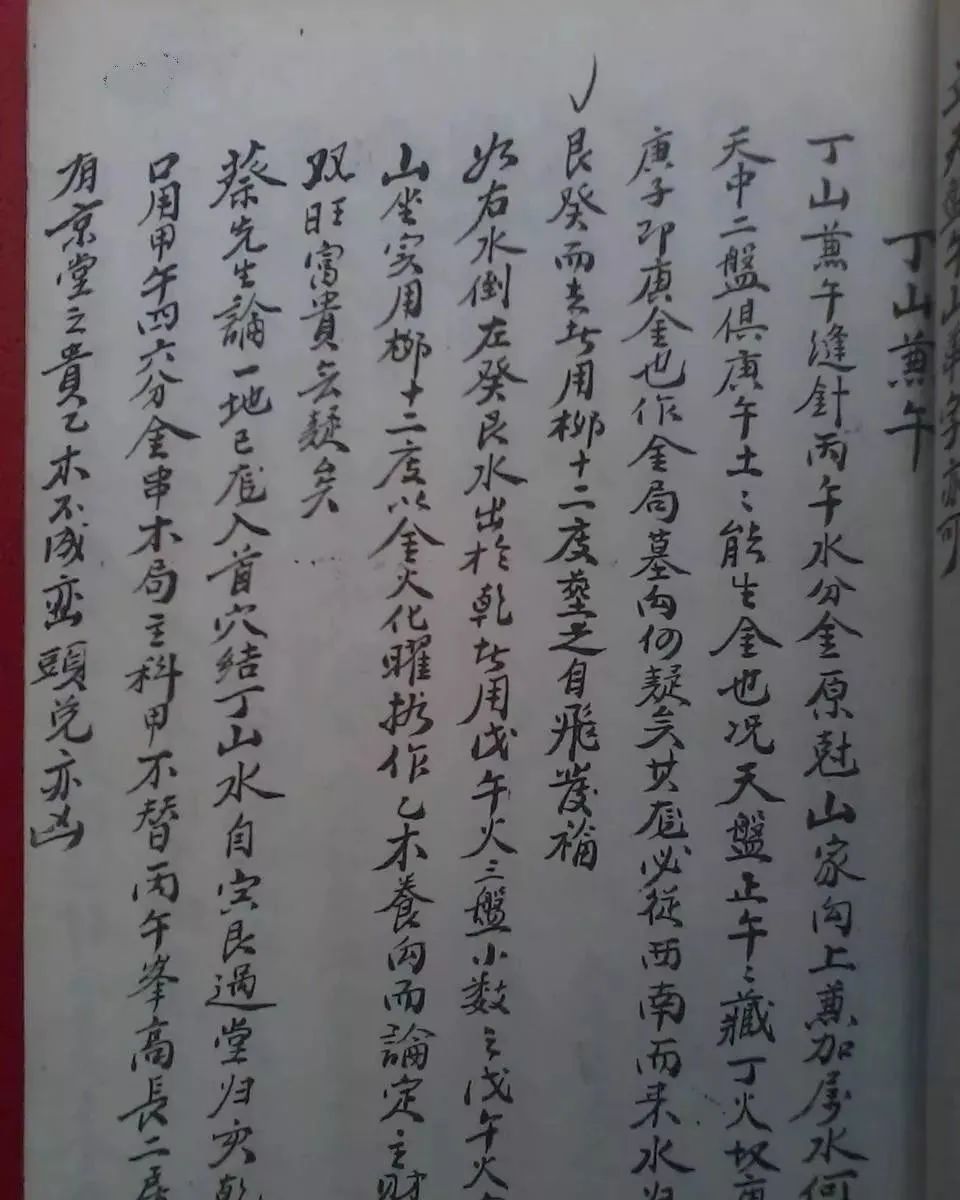 丁山蕪午
丁山蕪午縫針丙午水分金原尅山家向上蕪加屬水何
天中二盤俱庚午土〻能生金也况天盤正午〻藏丁火
庚子即庚金也作金局墓向何疑矣其龙必從西南而来水归
艮癸而去者用柳十二度塟之自飛發福
如右水倒左癸艮水出於乾者用戊午火三盤小数之戊午火
山坐实用柳十二度以金火化曜作乙木養向而論定主财
双旺富貴无疑矣
蔡先生論一地已龙入首穴结丁山水自艮過堂归亥乾
只用甲午四六分金串木局主科甲不替丙午峯高長二房
有京堂之貴乙木不成峦頭兑亦凶